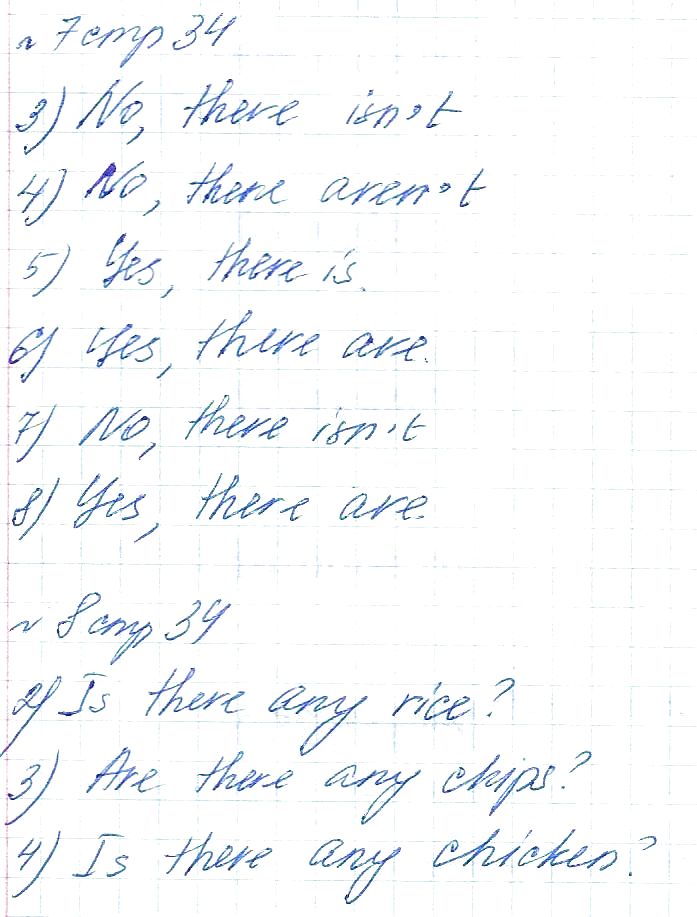 № 7 стр 34
3) No, there isn't
4) No, there aren't
5) Yes, there is.
6) Yes, there are.
7) No, there isn't
8) Yes, there are.
№ 8 стр 34
2) Is there any rice?
3) Are there any chips?
4) Is there any chicken?